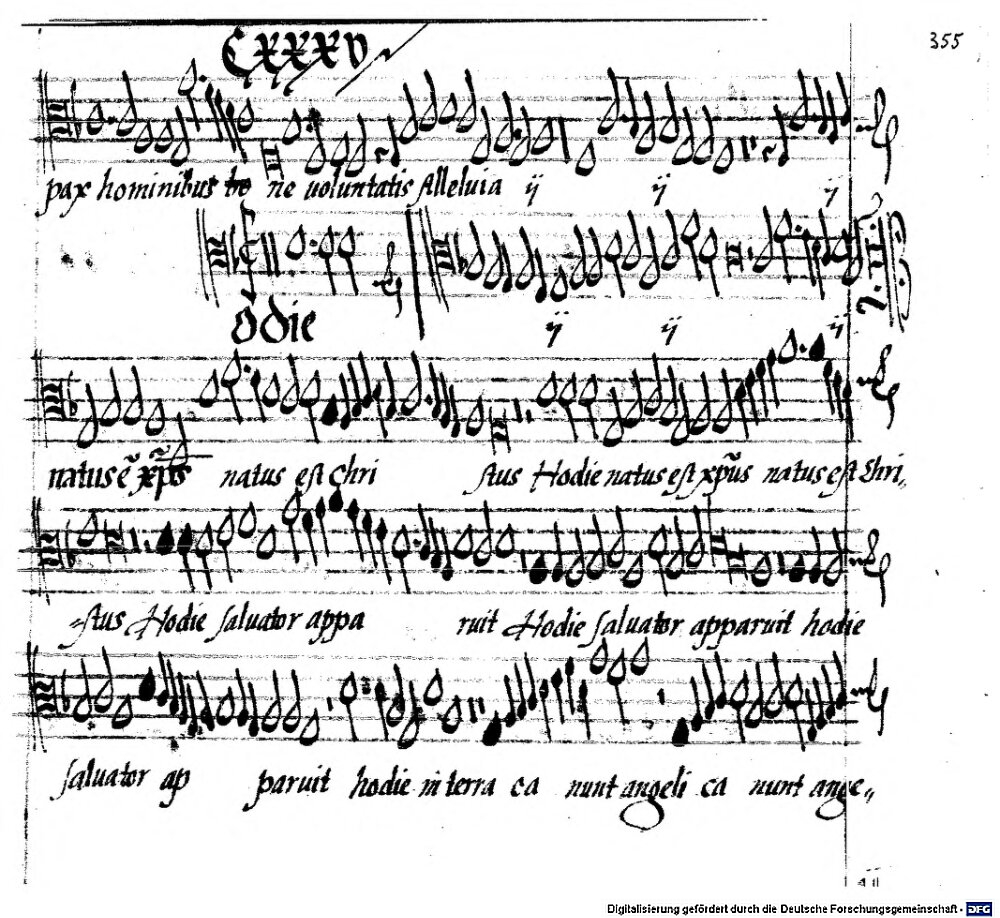 355
CXXXV
pax hominibus bo ne voluntatis Alleluia ij ij ij
odie ij ij ij
natus ē xp̄s natus est Chri stus Hodie natus est xp̄us natus est Chri,,
stus Hodie salvator appa ruit Hodie salvator apparuit hodie
salvator ap paruit hodie in terra ca nunt angeli ca nunt ange,,
Digitalisierung gefördert durch die Deutsche Forschungsgemeinschaft - DFG